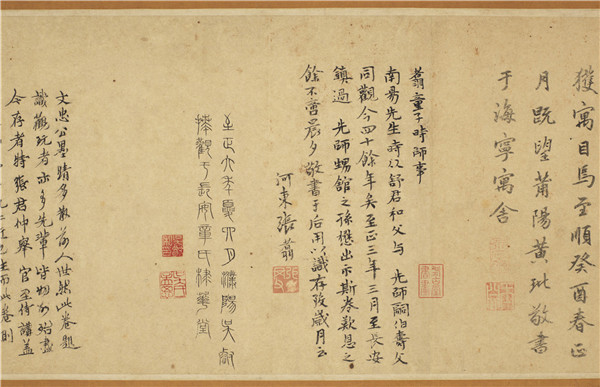 獲寓目焉至順癸酉春正
月既望莆陽黃玭敬書
于海寧寓舍
翥童子時師事
南昜先生時以舒君和父与 先師嗣伯壽父
同觀今四十餘年矣至正三年三月至長安
鎮過 先師甥館之孫懋出示斯卷歎息之
餘不啻晨夕敬書于后用以識存歿歲月云
河東張翥
至正六季夏六月濮陽吳叡
捧觀于長安章氏棣華堂
文忠公墨蹟多散落人世然此卷題
識觀玩者亦多先輩皆物故殆盡
今存者特張君仲舉官至侍講蓋